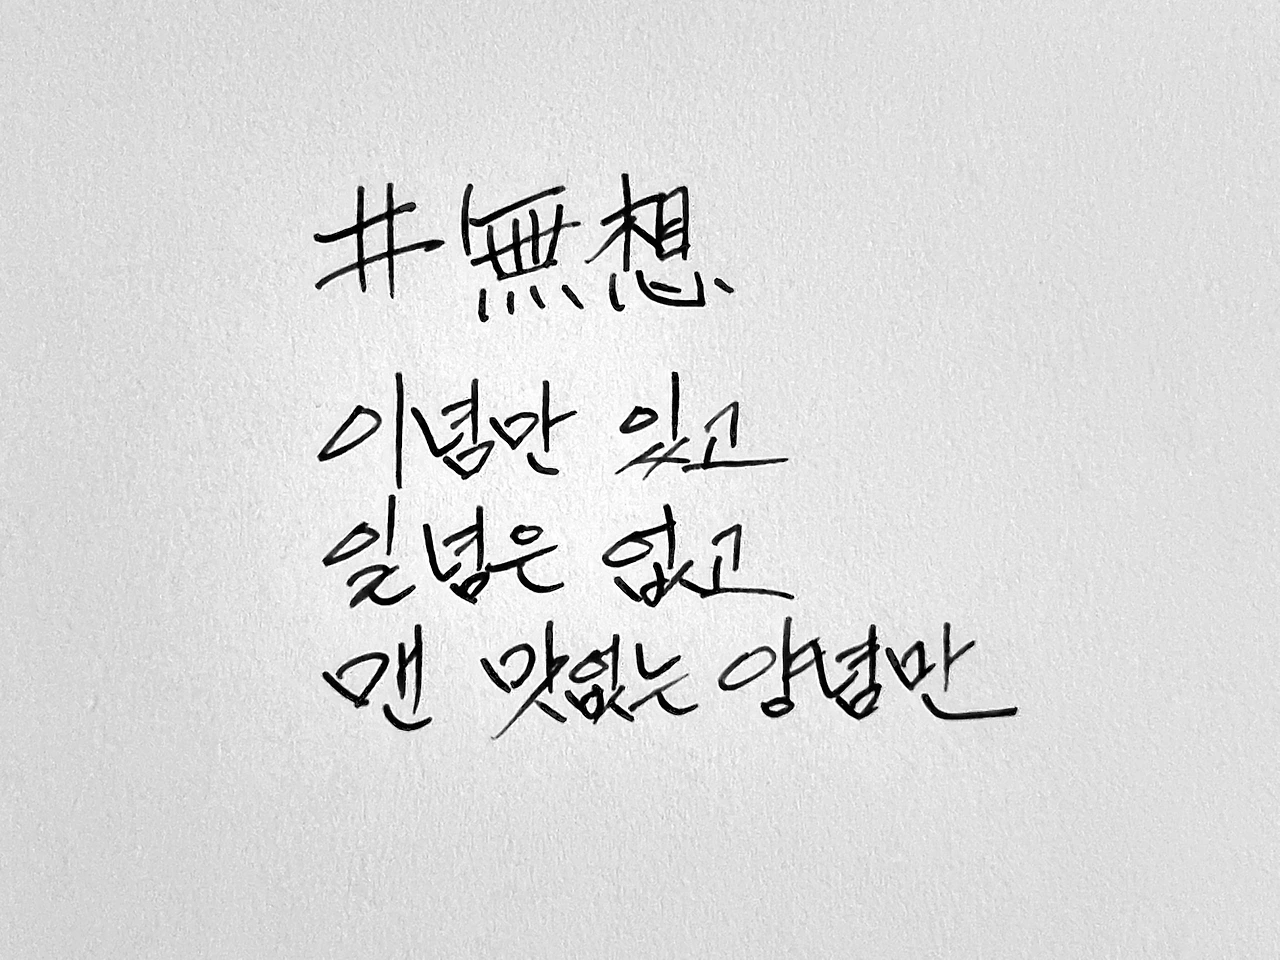 #無想
이념만 있고
일념은 없고
맨 맛없는 양념만